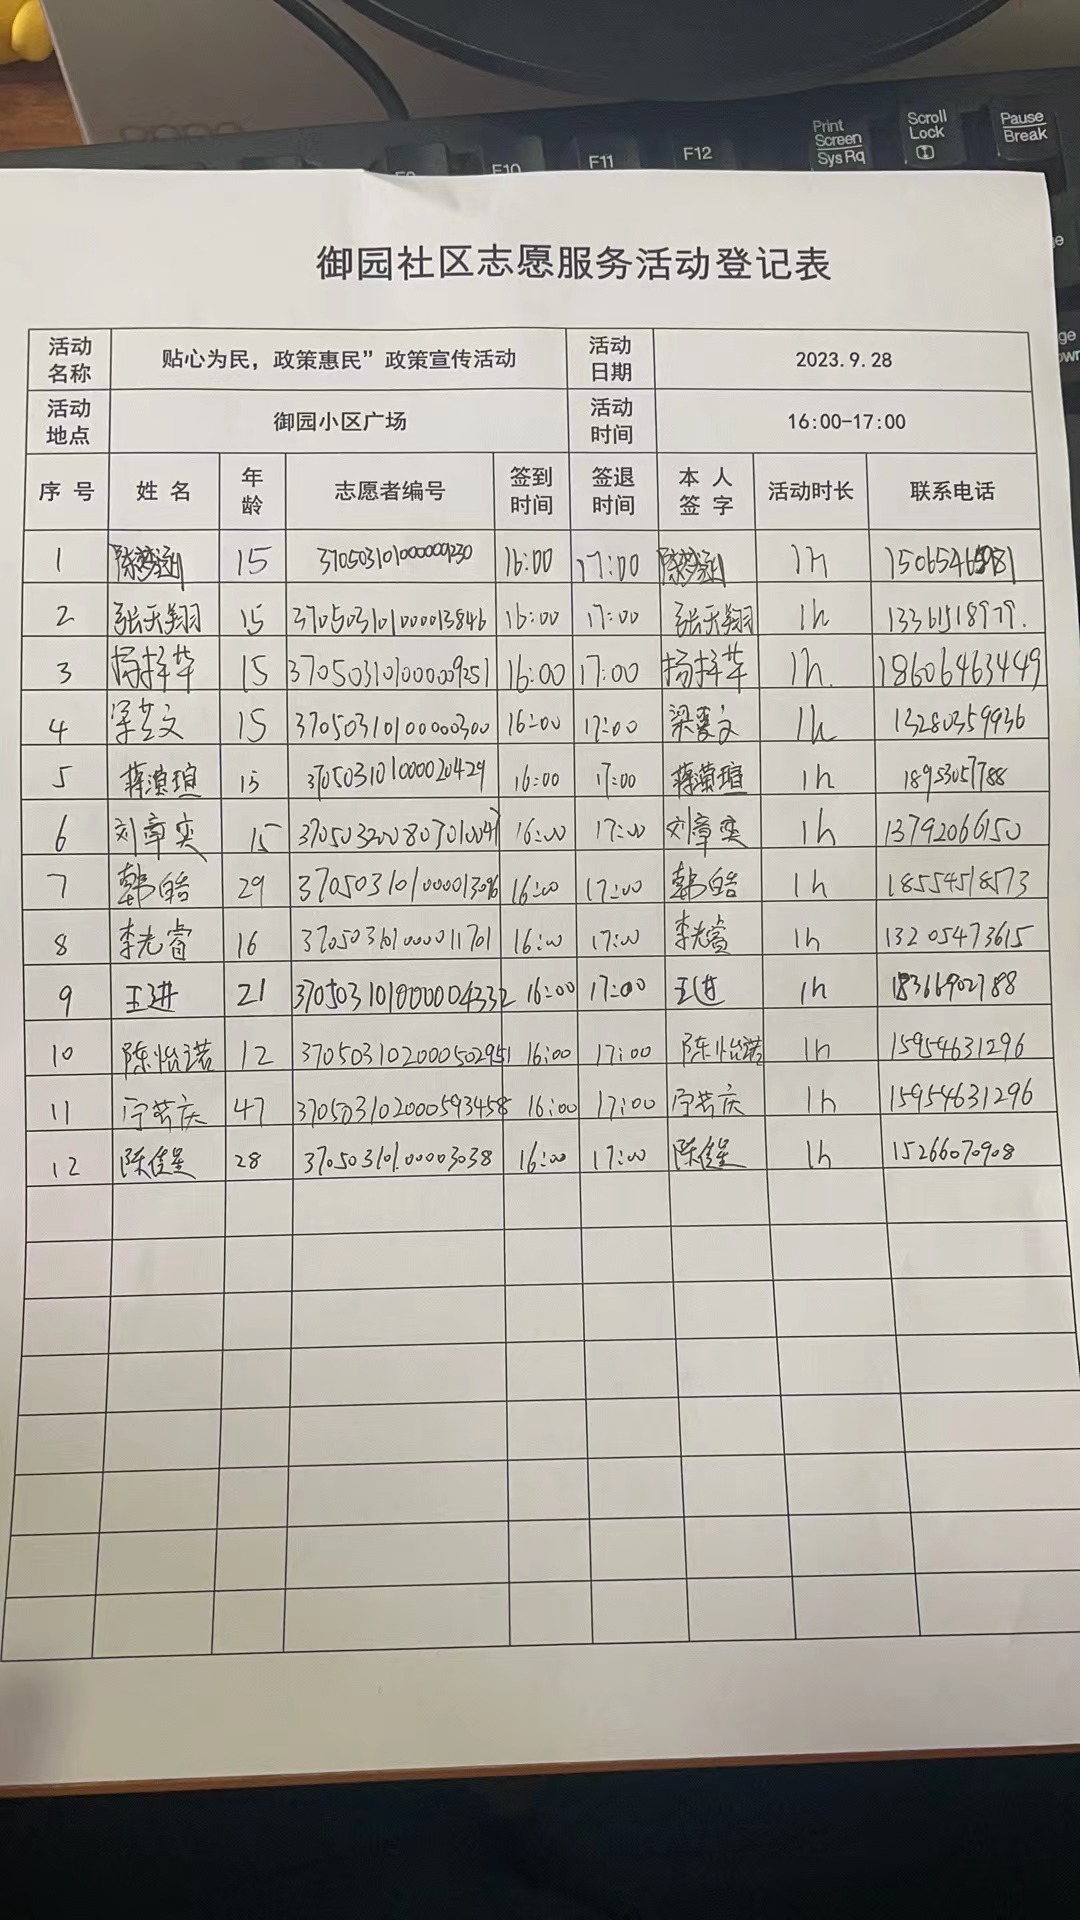 Print
Screen
SysRq
Scroll
Lock
Pause
Break
F10
F11
F12
御园社区志愿服务活动登记表
活动名称 贴心为民，政策惠民”政策宣传活动 活动日期 2023.9.28
活动地点 御园小区广场 活动时间 16:00-17:00
序号 姓名 年龄 志愿者编号 签到时间 签退时间 本人签字 活动时长 联系电话
1 15 16:00 17:00 1h
2 张天翔 15 370503101000013846 16:00 17:00 张天翔 1h
3 15 370503101000009251 16:00 17:00 1h. 18606463449
4 15 370503101000000300 16:00 17:00 1h 13280359936
5 15 370503101000020429 16:00 17:00 1h 18953057788
6 刘章奕 15 16:00 17:00 刘章奕 1h 13792066150
7 韩皓 29 370503101000013096 16:00 17:00 韩皓 1h 18554518573
8 李光睿 16 16:00 17:00 李光睿 1h 13205473615
9 王进 21 16:00 17:00 王进 1h 18366902788
10 陈怡诺 12 370503102000502951 16:00 17:00 陈怡诺 1h 15954631296
11 宁若庆 47 370503102000593458 16:00 17:00 宁若庆 1h 15954631296
12 28 16:00 17:00 1h 15266070908